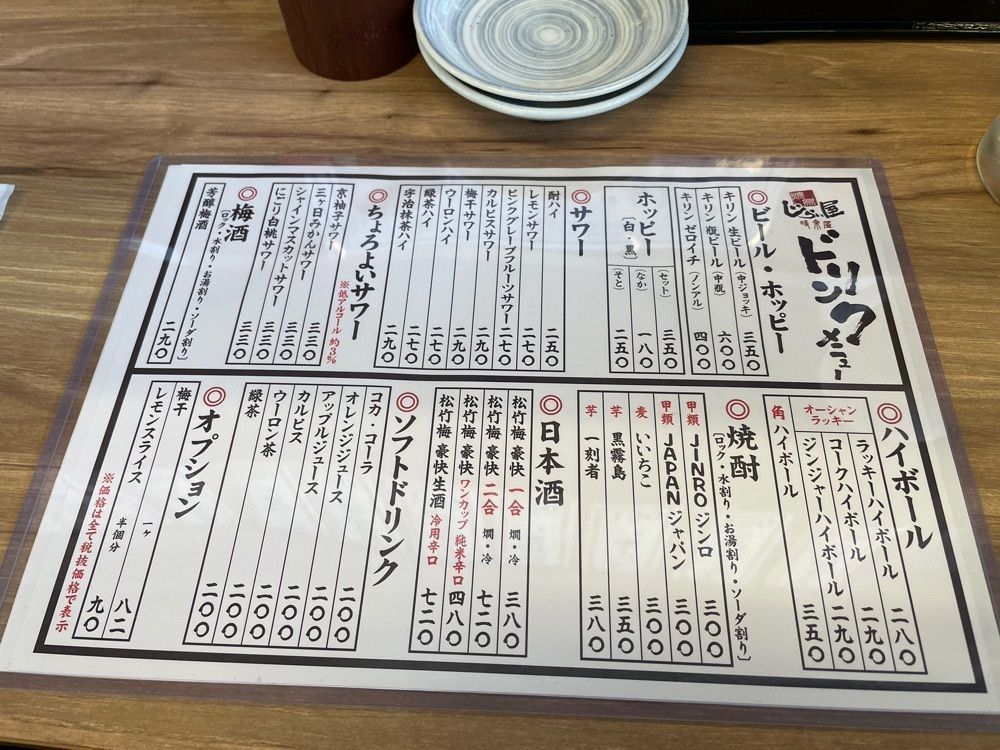 じぶん屋
晴京屋
ドリンクメニュー
◎ビール・ホッピー
キリン 生ビール (中ジョッキ) 三五〇
キリン 瓶ビール (中瓶) 六〇〇
キリン ゼロイチ (ノンアル) 四〇〇
ホッピー (白・黒)
(セット) 三五〇
(なか) 一八〇
(そと) 二五〇
◎サワー
酎ハイ 二五〇
レモンサワー 二七〇
ピンクグレープフルーツサワー 二七〇
カルピスサワー 二九〇
梅干サワー 二九〇
ウーロンハイ 二七〇
緑茶ハイ 二七〇
宇治抹茶ハイ 二九〇
◎ちょろよいサワー
※低アルコール 約3%
京柚子サワー 三三〇
三ヶ日みかんサワー 三三〇
シャインマスカットサワー 三三〇
にごり白桃サワー 三三〇
◎梅酒
(ロック・水割り・お湯割り・ソーダ割り)
芳醇梅酒 二九〇
◎ハイボール
オーシャンラッキー
ラッキーハイボール 二八〇
コークハイボール 二九〇
ジンジャーハイボール 二九〇
角ハイボール 三五〇
◎焼酎
(ロック・水割り・お湯割り・ソーダ割り)
甲類 JINRO ジンロ 三〇〇
甲類 JAPAN ジャパン 三〇〇
麦 いいちこ 三〇〇
芋 黒霧島 三五〇
芋 一刻者 三八〇
◎日本酒
松竹梅 豪快 一合 燗・冷 三八〇
松竹梅 豪快 二合 燗・冷 七二〇
松竹梅 豪快 ワンカップ 純米辛口 四八〇
松竹梅 豪快生酒 冷用辛口 七二〇
◎ソフトドリンク
コカ・コーラ 二〇〇
オレンジジュース 二〇〇
アップルジュース 二〇〇
カルピス 二〇〇
ウーロン茶 二〇〇
緑茶 二〇〇
◎オプション
梅干 一ヶ 八二
レモンスライス 半個分 九〇
※価格は全て税抜価格で表示